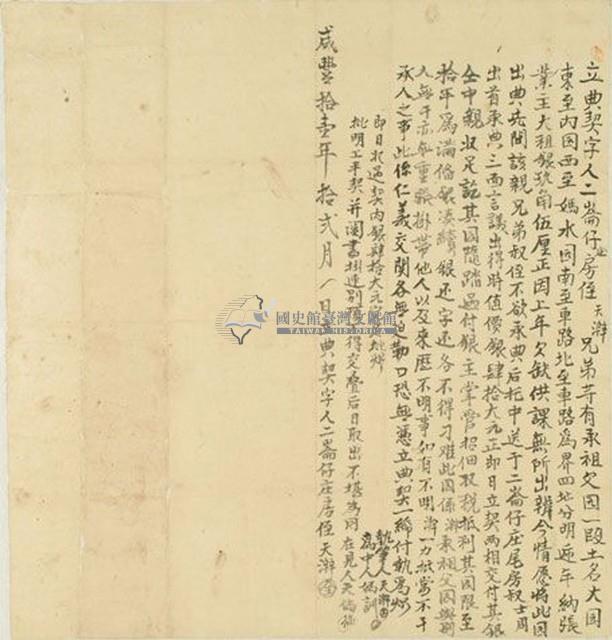 立典契字人二崙仔庄房侄天湃兄弟等有承祖父田一段土名大田
東至內田西至媽水田南至車路北至車路為界四址分明遞年納張
業主大租銀玖角伍厘正因上年欠缺供課無所出辦今情愿將此田
出典先問該親兄弟叔侄不欲承典后托中送于二崙仔庄尾房叔士周
出首承典三面言議出得時值價銀肆拾大元正即日立契兩相交付其銀
仝中親收足訖其田隨踏過付銀主掌管招佃收稅抵利其田限至
拾年為滿備銀湊續銀还字还各不得刁难此田係湃承祖父田與別
人無干亦無重張掛帶他人以及來歷不明等事如有不明湃一力抵當不干
承人之事此係仁義交關各無迫勒口恐無憑立典契一紙付執為炤
即日收過契內銀肆拾大元完足批炤
批明上手契并鬮書掛連別得交叠后日取出不堪為用在見人天
執筆人天湃
為中人媽訓
咸豐拾壹年拾弍月 日立典契字人二崙仔庄房侄天湃
國史館臺灣文獻館
TAIWAN HISTORICA